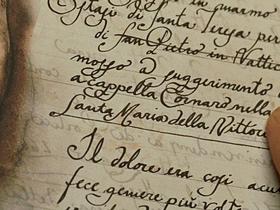 in marmo
Estasi di Santa Teresa per
di San Pietro in Vatic
mosso a suggerimento
a Cappella Cornaro nella
Santa Maria della Vittori
Il dolore era così acu
fece gemere più volt